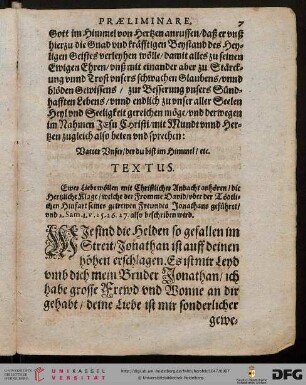 PRÆLIMINARE. 7
Gott im Himmel von Hertzen anruffen/ daß er vnß
hierzu die Gnad vnd kräfftigen Beystand des Hey-
ligen Geistes verleyhen wölle/ damit alles zu seinen
Ewigen Ehren/ vnß mit einander aber zu Stärck-
ung vnnd Trost vnsers schwachen Glaubens/ vnnd
blöden Gewissens/ zur Besserung vnsers Sünd-
hafften Lebens/ vnnd endlich zu vnser aller Seelen
Heyl vnd Seeligkeit gereichen möge/ vnd derwegen
im Nahmen Jesu Christi/ mit Mundt vnnd Her-
tzen zugleich also beten vnd sprechen:
Vatter Vnser/ der du bist im Himmel/ etc.
TEXTUS.
Ewer Liebe wöllen mit Christlicher Andacht anhören/ die
Hertzliche Klage/ welche der Fromme David/ vber der Tödtli-
chen Hinfart seines getrewen Freunds Jonathans geführet/
vnd 2. Sam. 1. v. 25. 26. 27. also beschriben wird.
WJe sind die Helden so gefallen im
Streit/ Jonathan ist auff deinen
höhen erschlagen. Es ist mir Leyd
vmb dich mein Bruder Jonathan/ ich
habe grosse Frewd vnd Wonne an dir
gehabt/ deine Liebe ist mir sonderlicher
gewe/
UNIKASSEL
VERSITÄT
DFG